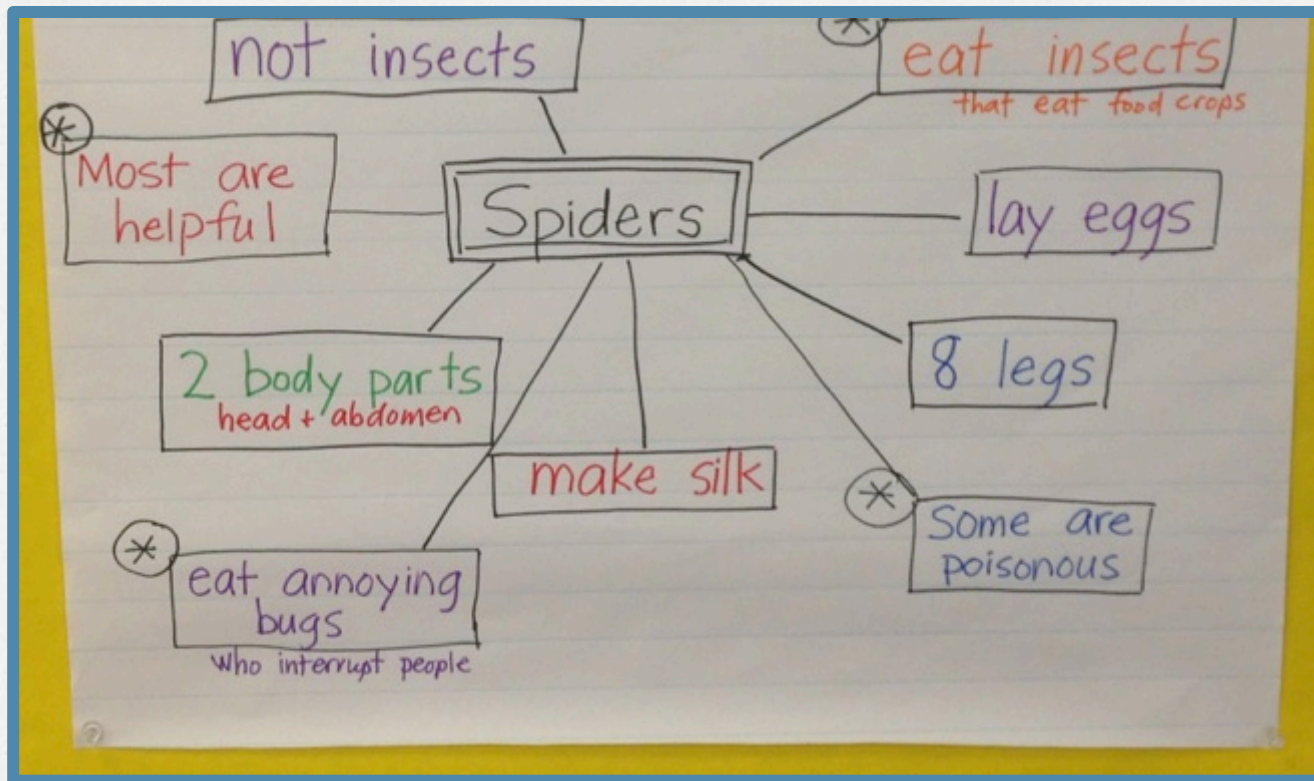 not insects
eat insects
that eat food crops
Most are
helpful
Spiders
lay eggs
2 body parts
head + abdomen
8 legs
make silk
Some are
poisonous
eat annoying
bugs
who interrupt people